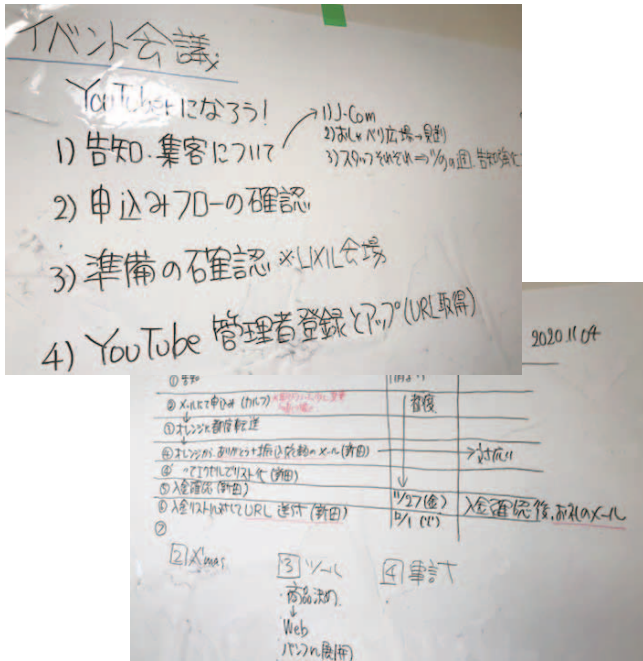 イベント会議
YouTuberになろう！
1) 告知・集客について
1) J-Com
2) おしゃべり広場→
3) スタッフそれぞれ⇒ 11/9の週、告知強化
2) 申込みフローの確認
3) 準備の確認 ※LIXIL会場
4) YouTube 管理者登録とアップ(URL取得)
2020.11.04
① 告知
② メールにて申込み
都度
③ オレンジに都度転送
④ オレンジから、ありがとう+振込依頼のメール(新田)
→ 支払い
④' エクセルでリスト化(新田)
⑤ 入金確認(新田)
11/27(金)
入金確認後、お礼のメール
⑥ 入金リストに対してURL送付(新田)
12/1(火)
⑦
2 X'mas
3 ツール
4 事計
・商品決め
↓
Web
パンフレ展開